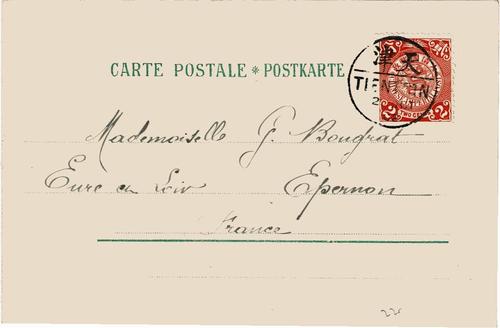 CARTE POSTALE * POSTKARTE
津天
TIENTSIN
2 2
TWO CEN
Mademoiselle G. Bougrat
Eure en Loir Epernon
France
22